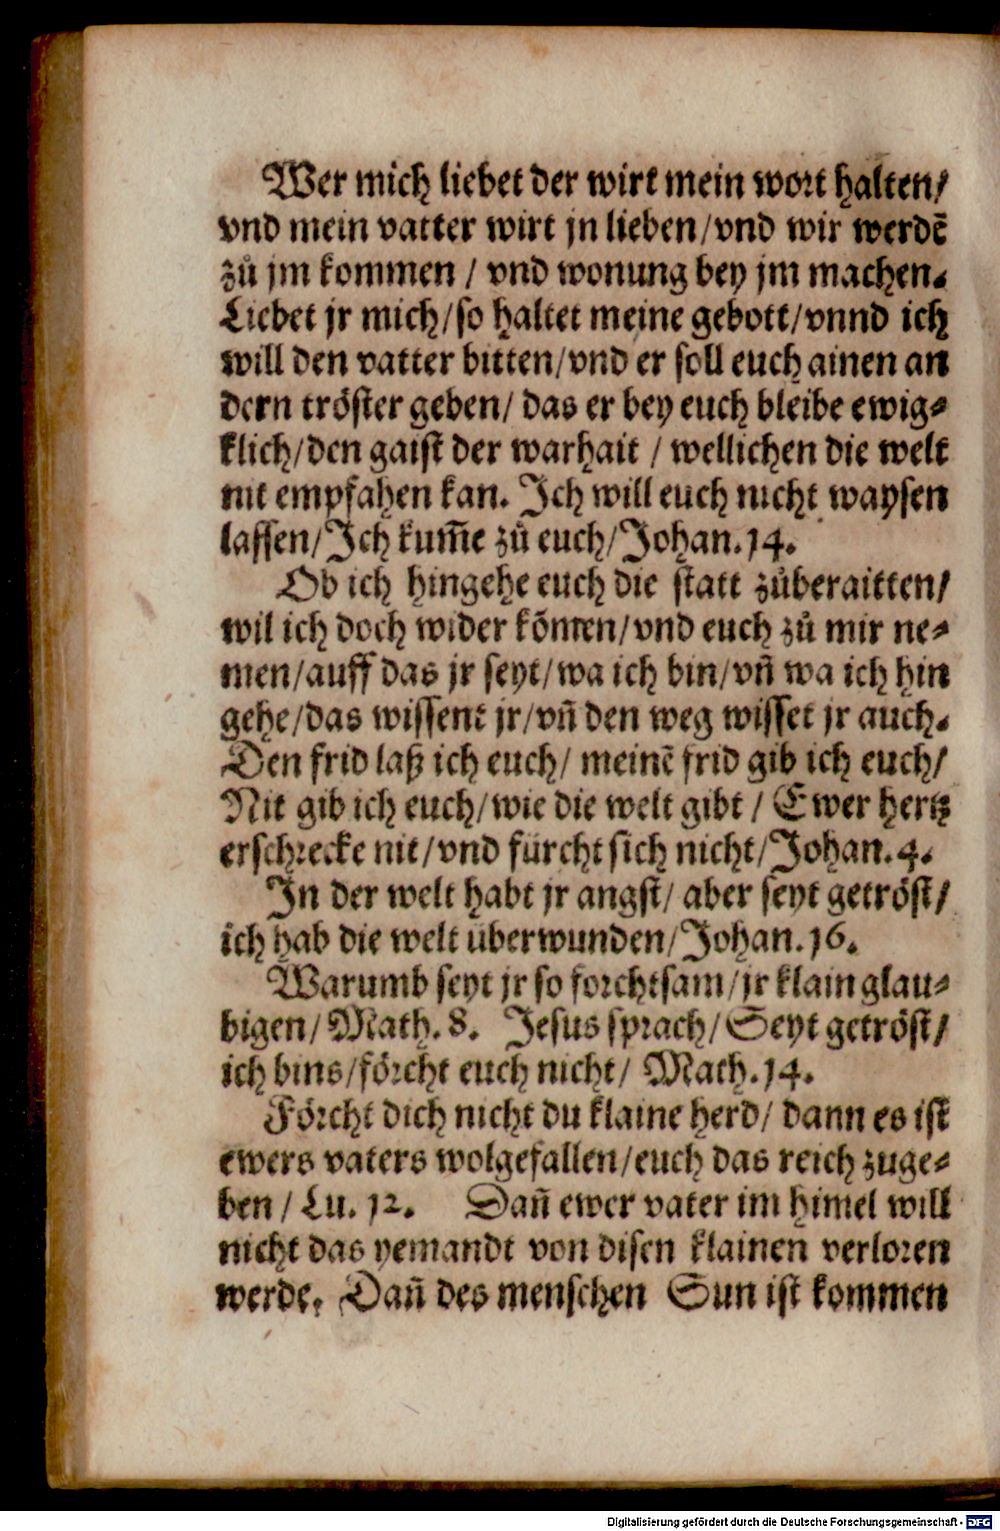 Wer mich liebet der wirt mein wort halten/
vnd mein vatter wirt jn lieben/vnd wir werdẽ
zů jm kommen / vnd wonung bey jm machen.
Liebet jr mich/so haltet meine gebott/vnnd ich
will den vatter bitten/vnd er soll euch ainen an
dern tröster geben/ das er bey euch bleibe ewig⸗
klich/den gaist der warhait / wellichen die welt
nit empfahen kan. Ich will euch nicht waysen
lassen/Ich kum̃e zů euch/Johan.14.
Ob ich hingehe euch die statt zůberaitten/
wil ich doch wider kom̃en/vnd euch zů mir ne⸗
men/auff das jr seyt/wa ich bin/vñ wa ich hin
gehe/das wissent jr/vñ den weg wisset jr auch.
Den frid laß ich euch/ meinẽ frid gib ich euch/
Nit gib ich euch/wie die welt gibt / Ewer hertz
erschrecke nit/vnd fürcht sich nicht/Johan.4.
In der welt habt jr angst/ aber seyt getröst/
ich hab die welt uberwunden/Johan.16.
Warumb seyt jr so forchtsam/jr klain glau⸗
bigen/Math.8. Jesus sprach/Seyt getröst/
ich bins/förcht euch nicht/ Math.14.
Förcht dich nicht du klaine herd/ dann es ist
ewers vaters wolgefallen/euch das reich zuge⸗
ben / Lu. 12. Dañ ewer vater im himel will
nicht das yemandt von disen klainen verloren
werde. Dañ des menschen Sun ist kommen
Digitalisierung gefördert durch die Deutsche Forschungsgemeinschaft - DFG